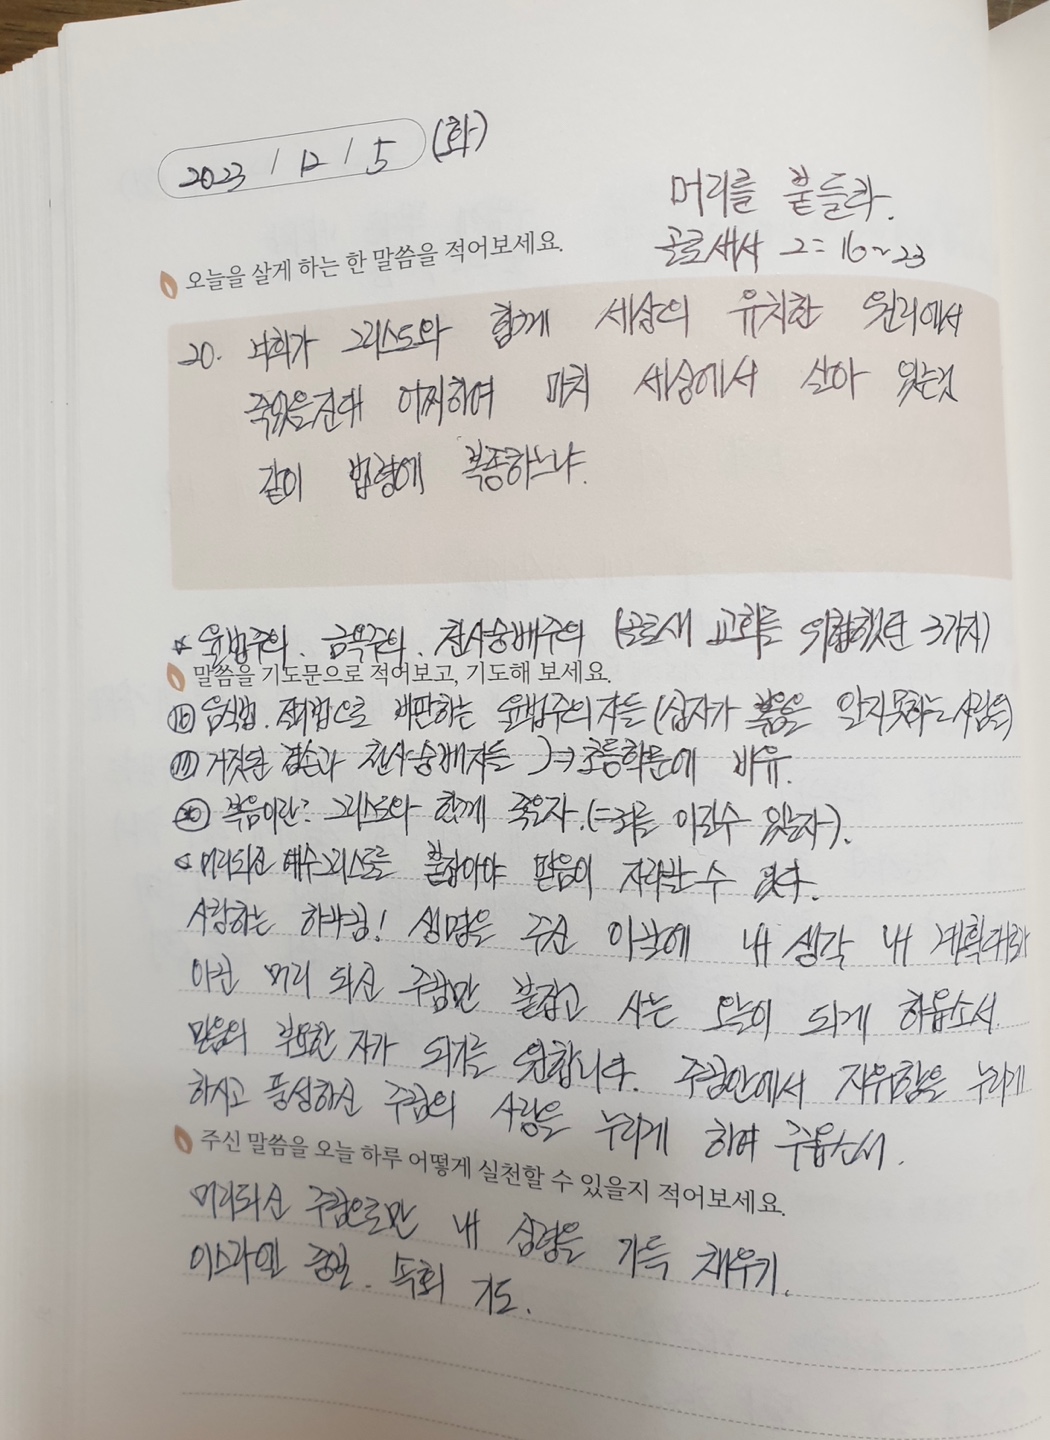 2023 / 12 / 5 (화)
머리를 붙들라.
골로새서 2:16~23
오늘을 살게 하는 한 말씀을 적어보세요.
20. 너희가 그리스도와 함께 세상의 유치한 원리에서
죽었을진대 어찌하여 마치 세상에서 살아 있는것
같이 법령에 복종하느냐.
* 율법주의. 금욕주의. 천사숭배주의 (골로새 교회를 위협했던 3가지)
말씀을 기도문으로 적어보고, 기도해 보세요.
⑯ 음식법. 절기법으로 재판하는 율법주의자들 (십자가 복음을 알지못하는 사람들)
⑱ 거짓된 겸손과 천사숭배자들 ) → 초등학문에 비유.
⑳ 복음이란? 그리스도와 함께 죽은자. (=죄를 이길수 있는자).
머리되신 예수그리스도를 붙잡아야 믿음이 자라날수 있다.
사랑하는 하나님! 생명을 주신 이날에 내 생각 내 계획대로
아닌 머리 되신 주님만 붙잡고 사는 오늘이 되게 하옵소서.
믿음의 부요한 자가 되기를 원합니다. 주님안에서 자유함을 누리게
하시고 풍성하신 주님의 사랑을 누리게 하여 주옵소서.
주신 말씀을 오늘 하루 어떻게 실천할 수 있을지 적어보세요.
머리되신 주님으로만 내 심령을 가득 채우기.
이스라엘 중일. 속회 기도.